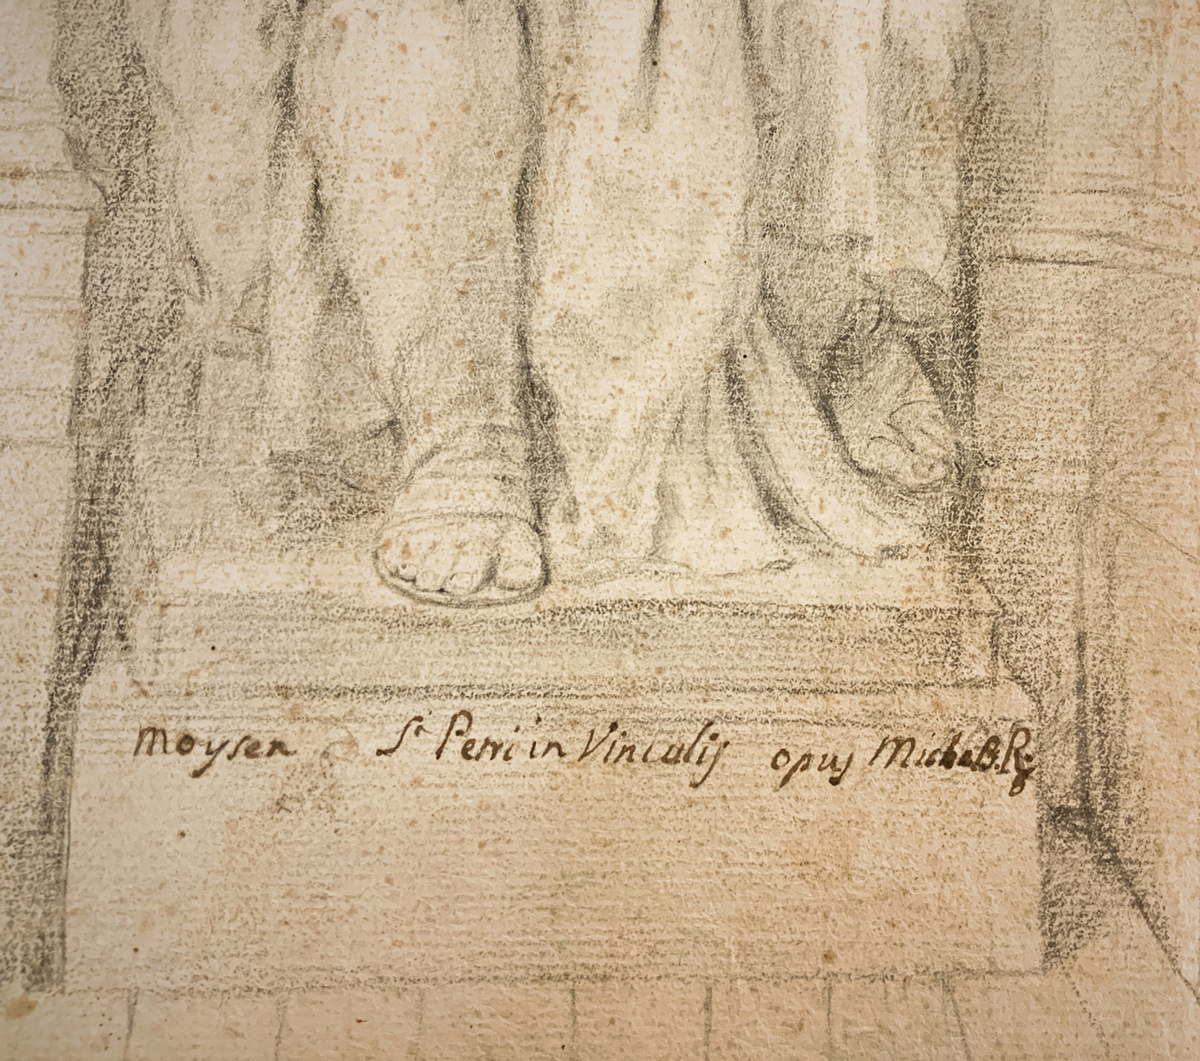 Moysen St Petri in Vinculis opus Michel B. R.